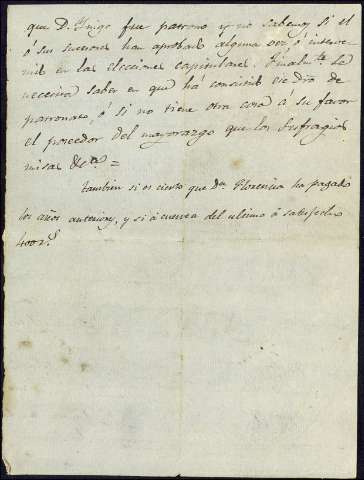 que D. Iñigo fue patrono y no sabemos si el
ó sus sucesores han aprobado alguna vez, ó interve
nido en las elecciones capitulares. Finalmte. se
necesita saber en que há consistido ese dro. de
patronato, ó si no tiene otra cosa á su favor
el poseedor del mayorazgo que los sufragios
misas &ca. =
tambien si es cierto que Da. Florencia ha pagado
los años anteriores, y si á cuenta del ultimo á satisfecho
400 rs.